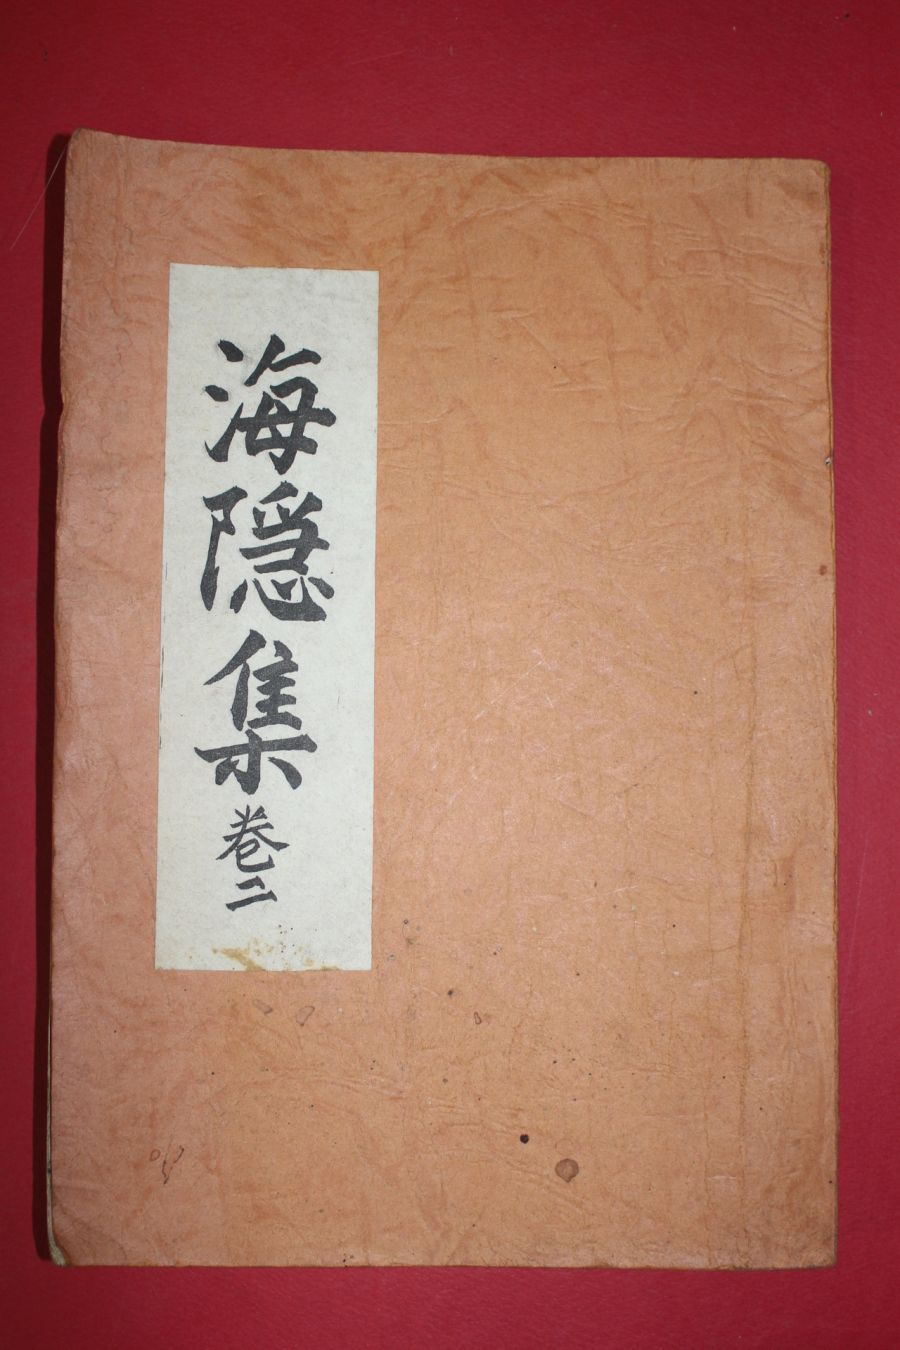 海隱集 卷二